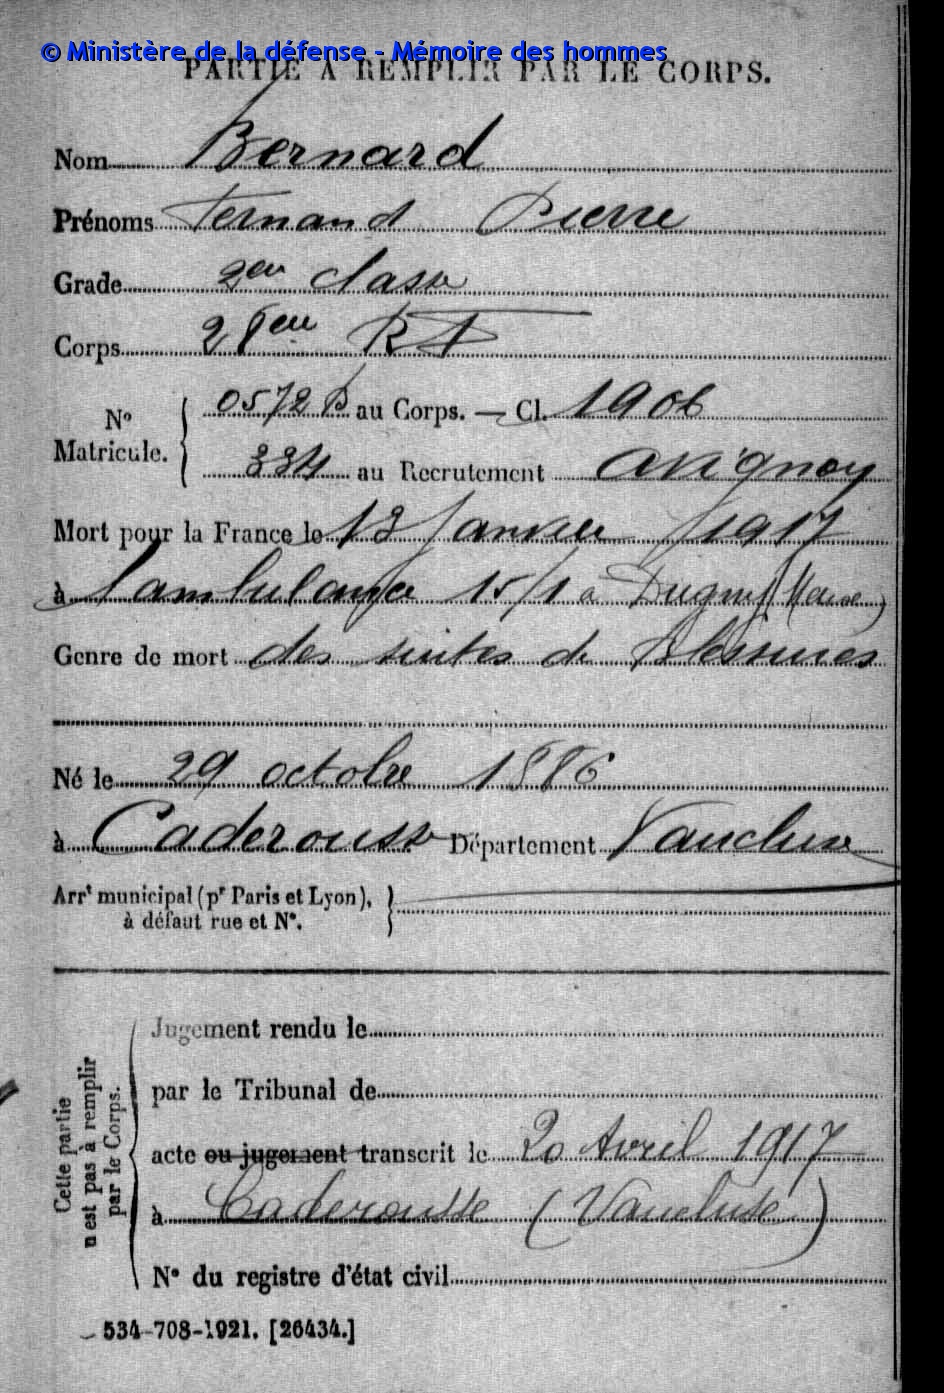 © Ministère de la défense - Mémoire des hommes
PARTIE À REMPLIR PAR LE CORPS.
Nom Bernard
Prénoms Fernand Pierre
Grade 2eu classe
Corps 28eu R I
No Matricule. 0572 B au Corps. — Cl. 1906
334 au Recrutement Avignon
Mort pour la France le 13 Janvier 1917
à L'ambulance 15/1 à Dugny (Meuse)
Genre de mort des suites de blessures
Né le 29 octobre 1886
à Caderousse Département Vaucluse
Arrt municipal (pr Paris et Lyon),
à défaut rue et N°.
Cette partie
n'est pas à remplir
par le Corps.
Jugement rendu le
par le Tribunal de
acte ou jugement transcrit le 20 Avril 1917
à Caderousse (Vaucluse)
N° du registre d'état civil
534-708-1921. [26434.]